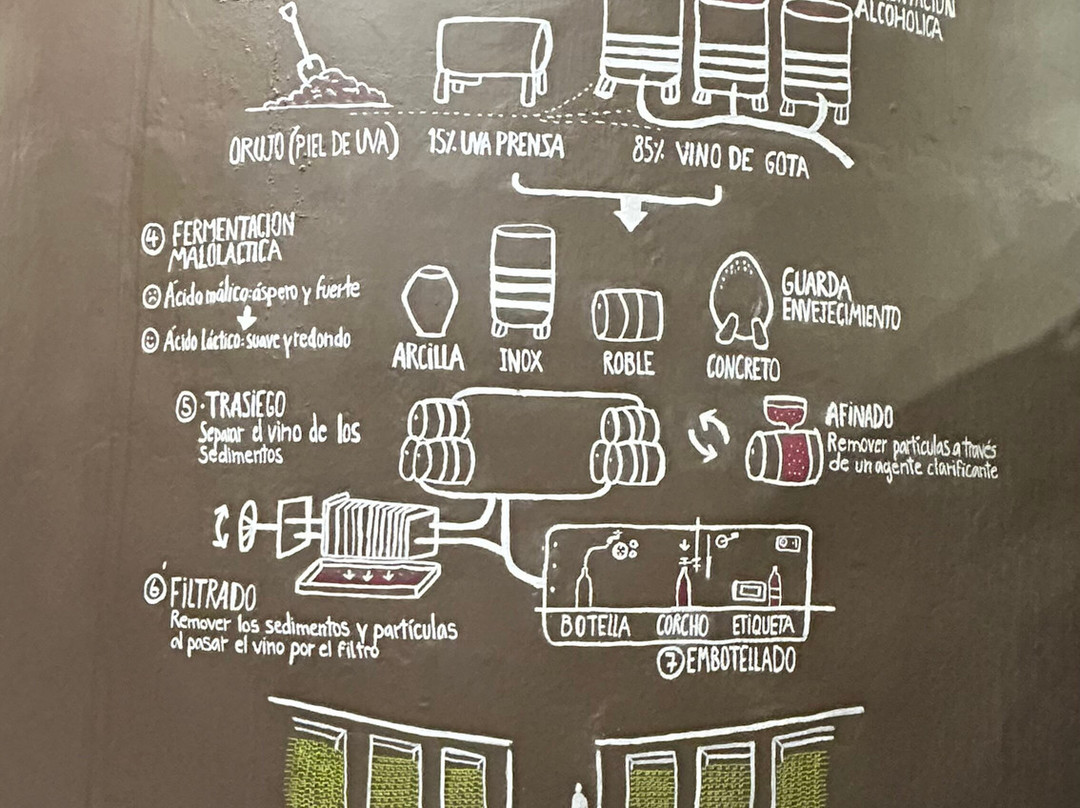 ALCOHOLICA
ORUJO (PIEL DE UVA)
15% UVA PRENSA
85% VINO DE GOTA
④ FERMENTACION
MALOLACTICA
Ácido málico: áspero y fuerte
Ácido Láctico: suave y redondo
ARCILLA
INOX
ROBLE
CONCRETO
GUARDA
ENVEJECIMIENTO
⑤ · TRASIEGO
Separar el vino de los
Sedimentos
AFINADO
Remover partículas a través
de un agente clarificante
⑥ FILTRADO
Remover los sedimentos y partículas
al pasar el vino por el filtro
BOTELLA
CORCHO
ETIQUETA
⑦ EMBOTELLADO